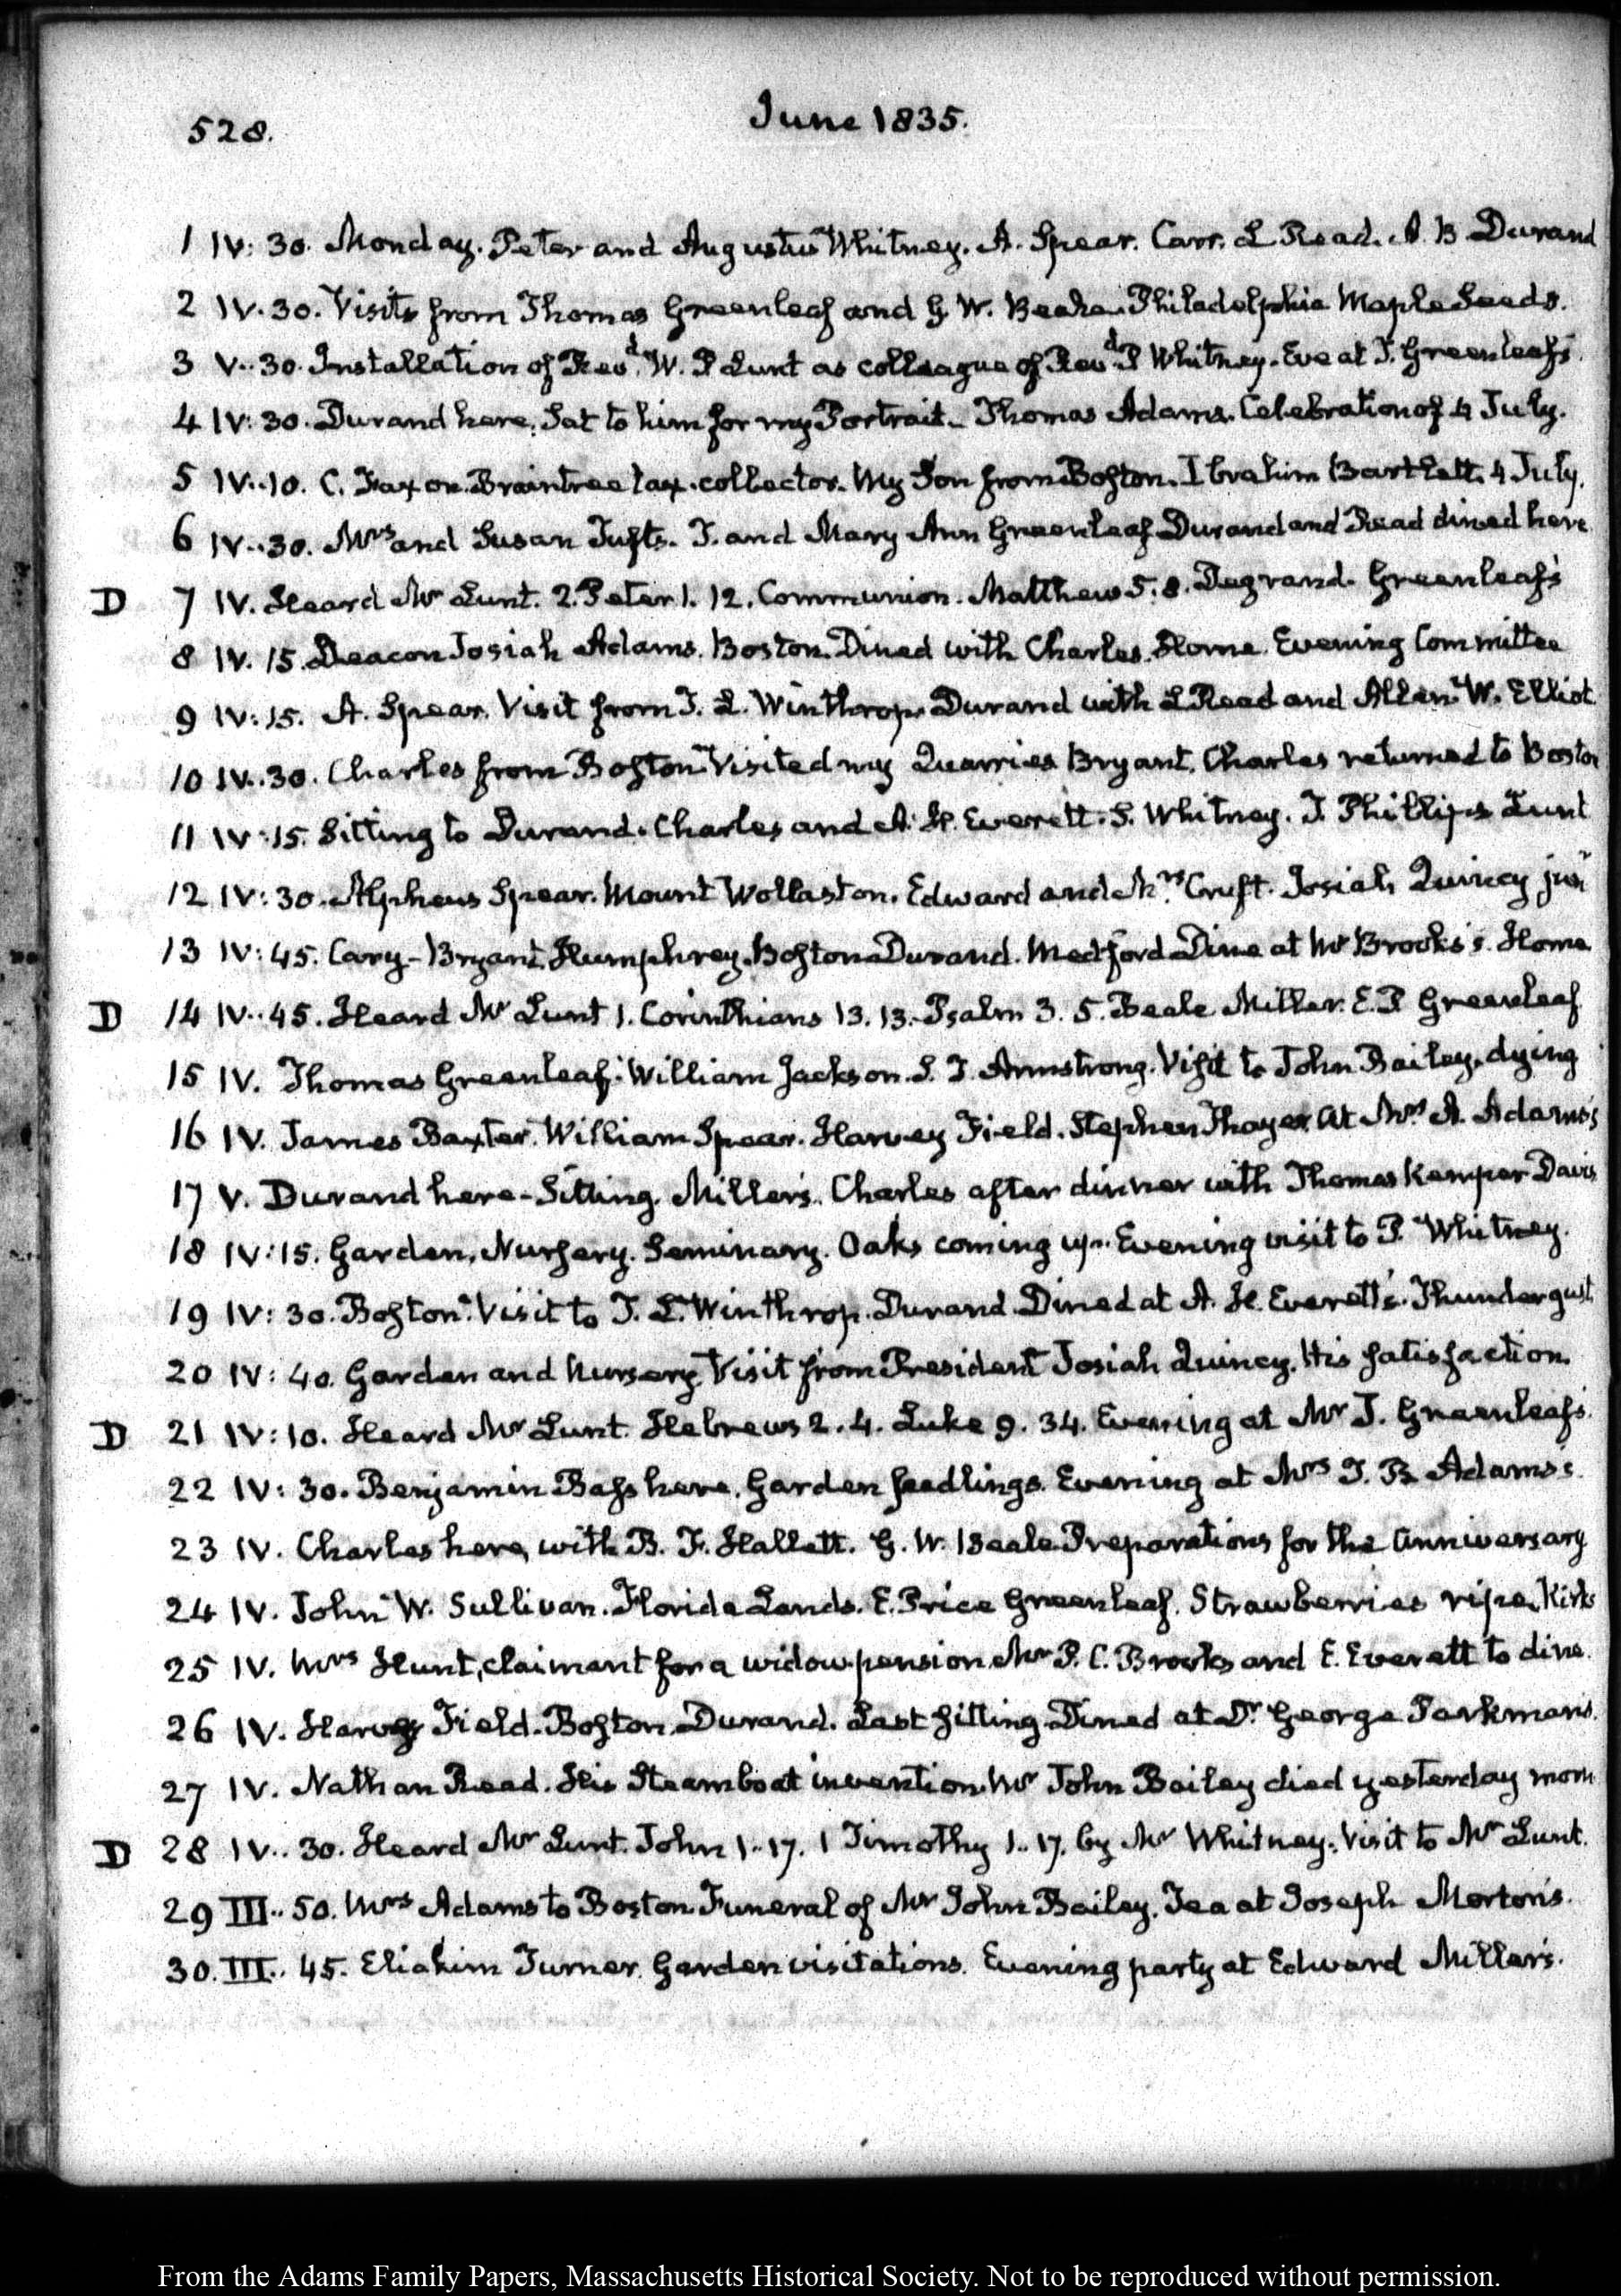 528.
June 1835.
1 IV: 30. Monday. Peter and Augustus Whitney. A. Spear. Carr. L Read. A. B Durand
2 IV. 30. Visits from Thomas Greenleaf and G. W. Beale. Philadelphia Maple Seeds.
3 V.. 30. Installation of Revd. W. P Lunt as colleague of Revd P Whitney. Eve at T. Greenleaf's.
4 IV: 30. Durand here. Sat to him for my Portrait. Thomas Adams. Celebration of 4 July.
5 IV..10. C. Faxon. Braintree tax. collector. My Son from Boston. Ibrahim Bartlett. 4 July.
6 IV..30. Mrs and Susan Tufts. T. and Mary Ann Greenleaf Durand and Read dined here
D 7 IV. Heard Mr Lunt. 2. Peter 1. 12. Communion. Matthew 5. 8. Degrand. Greenleaf's
8 IV. 15. Deacon Josiah Adams. Boston. Dined with Charles. Home. Evening Committee
9 IV: 15. A. Spear. Visit from T. L. Winthrop. Durand with L Read and Allan. W. Elliot
10 IV..30. Charles from Boston. Visited my Quarries. Bryant. Charles returned to Boston
11 IV:15. Sitting to Durand. Charles and A. H. Everett. S. Whitney. J. Phillips Lunt
12 IV: 30. Alpheus Spear. Mount Wollaston. Edward and Mrs Cruft. Josiah Quincy junr
13 IV: 45. Cary - Bryant. Humphrey. Boston Durand. Medford Dine at Mr Brooks's. Home
D 14 IV.. 45. Heard Mr Lunt 1. Corinthians 13. 13. Psalm 3. 5. Beale Miller. E. P Greenleaf
15 IV. Thomas Greenleaf. William Jackson. S. T. Armstrong. Visit to John Bailey. dying
16 IV. James Baxter. William Spear. Harvey Field. Stephen Thayer. At Mrs A. Adams's
17 V. Durand here - Sitting. Miller's. Charles after dinner with Thomas Kemper Davis
18 IV:15. Garden. Nursery. Seminary. Oaks coming up. Evening visit to P. Whitney.
19 IV: 30. Boston. Visit to T. L. Winthrop. Durand Dined at A. H. Everett's. Thundergust
20 IV: 40. Garden and Nursery. Visit from President Josiah Quincy. His satisfaction.
D 21 IV: 10. Heard Mr Lunt. Hebrews 2. 4. Luke 9. 34. Evening at Mr T. Greenleaf's.
22 IV: 30. Benjamin Bass here. Garden seedlings. Evening at Mrs T. B. Adams's.
23 IV. Charles here, with B. F. Hallett. G. W. Beale Preparations for the Anniversary
24 IV. John W. Sullivan. Florida Lands. E. Price Greenleaf. Strawberries ripe. Kirks
25 IV. Mrs Hunt, claimant for a widow pension. Mr P. C. Brooks and E. Everett to dine.
26 IV. Harvey Field. Boston. Durand. Last sitting. Dined at Dr George Parkman's.
27 IV. Nathan Read. His Steamboat invention. Mr John Bailey died yesterday morn
D 28 IV.. 30. Heard Mr Lunt. John 1..17. 1 Timothy 1..17. by Mr Whitney. Visit to Mr Lunt.
29 III.. 50. Mrs Adams to Boston. Funeral of Mr John Bailey. Tea at Joseph Morton's.
30. III.. 45. Eliakim Turner. Garden visitations. Evening party at Edward Miller's.
From the Adams Family Papers, Massachusetts Historical Society. Not to be reproduced without permission.